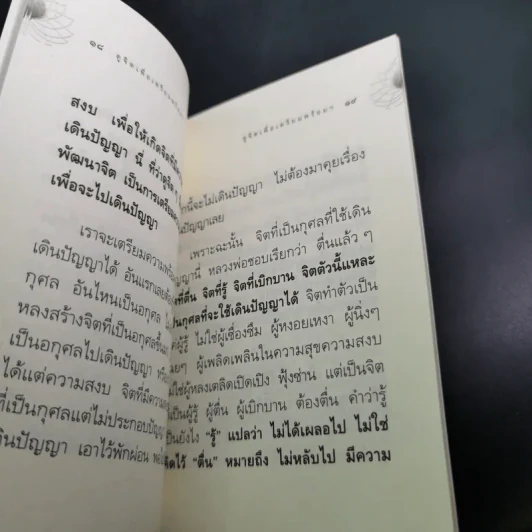 ๑๘
สงบ เพื่อให้เกิดจิตที่
เดินปัญญา นี่ ที่ว่าดูจิต
พัฒนาจิต เป็นการเตรียม
เพื่อจะไปเดินปัญญา
เราจะเตรียมความพร้อม
เดินปัญญาได้ อันแรกเลย
กุศล อันไหนเป็นอกุศล
หลงสร้างจิตที่เป็นอกุศลขึ้น
เป็นอกุศลไปเดินปัญญา หรือ
ได้แต่ความสงบ จิตที่มี
ที่เป็นกุศลแต่ไม่ประกอบปัญญา
ดินปัญญา เอาไว้พักผ่อน
๑๙
กนี้จะไม่เดินปัญญา ไม่ต้องมาคุยเรื่อง
ปัญญาเลย
เพราะฉะนั้น จิตที่เป็นกุศลที่ใช้เดิน
ญญานี่ หลวงพ่อชอบเรียกว่า ตื่นแล้วๆ
ที่ตื่น จิตที่รู้ จิตที่เบิกบาน จิตตัวนี้แหละ
ป็นกุศลที่จะใช้เดินปัญญาได้ จิตทำตัวเป็น
ผู้รู้ ไม่ใช่ผู้เซื่องซึม ผู้หงอยเหงา ผู้นิ่งๆ
ยๆ ผู้เพลิดเพลินในความสุขความสงบ
ใช่ผู้หลงเตลิดเปิดเปิง ฟุ้งซ่าน แต่เป็นจิต
เป็นผู้รู้ ผู้ตื่น ผู้เบิกบาน ต้องตื่น คำว่ารู้
ป็นยังไง “รู้” แปลว่า ไม่ได้เผลอไป ไม่ใช่
คิดไว้ “ตื่น” หมายถึง ไม่หลับไป มีความ